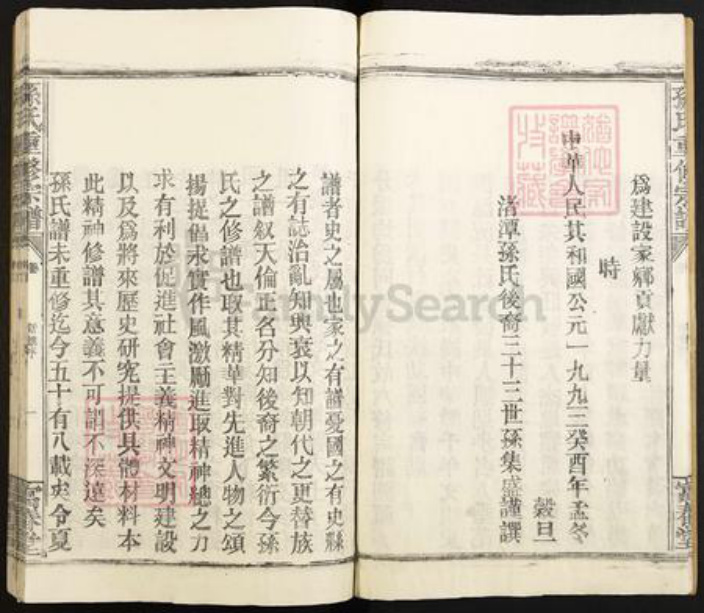 為建設家鄉貢獻力量
時
中華人民共和國公元一九九三癸酉年孟冬
穀旦
渚潭孫氏後裔三十三世孫集盛謹譔
孫氏重修宗譜
譜者史之屬也家之有譜憂國之有史縣
之有誌治亂知興衰以知朝代之更替族
之譜叙天倫正名分知後裔之繁衍今孫
氏之修譜也取其精華對先進人物之頌
揚提倡求實作風激勵進取精神總之力
求有利於促進社會主義精神文明建設
以及為將來歷史研究提供具體材料本
此精神修譜其意義不可謂不深遠矣
孫氏譜未重修迄今五十有八載矣今夏
孫氏重修宗譜
卷
FamilySearch